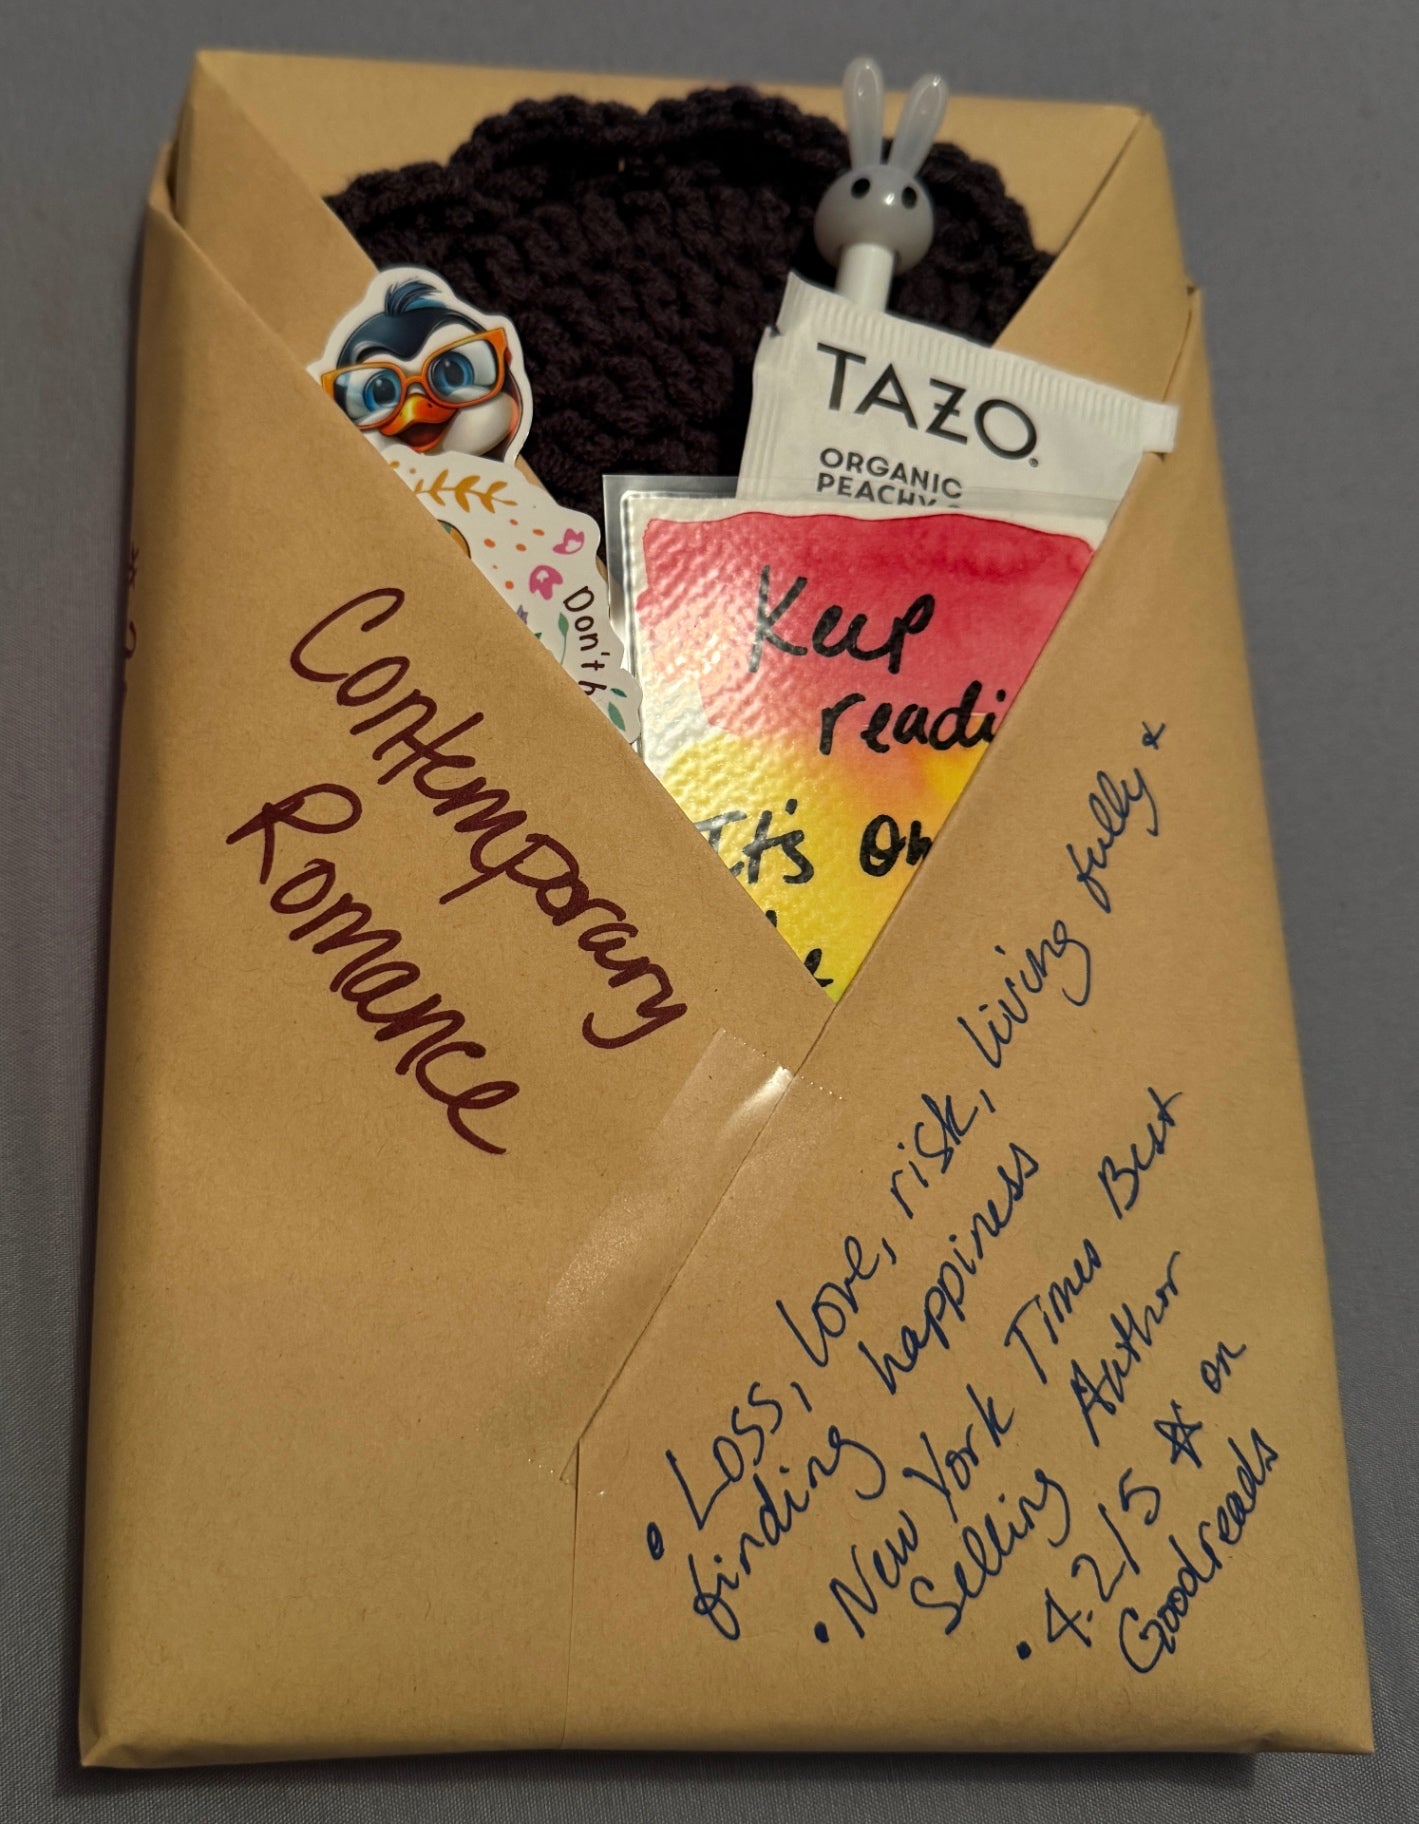 TAZO®
ORGANIC
PEACHY
Don't
Keep
readi
It's
Contemporary
Romance
• Loss, love, risk, living fully &
finding happiness
• New York Times Best
Selling Author
• 4.2/5 ☆ on
Goodreads